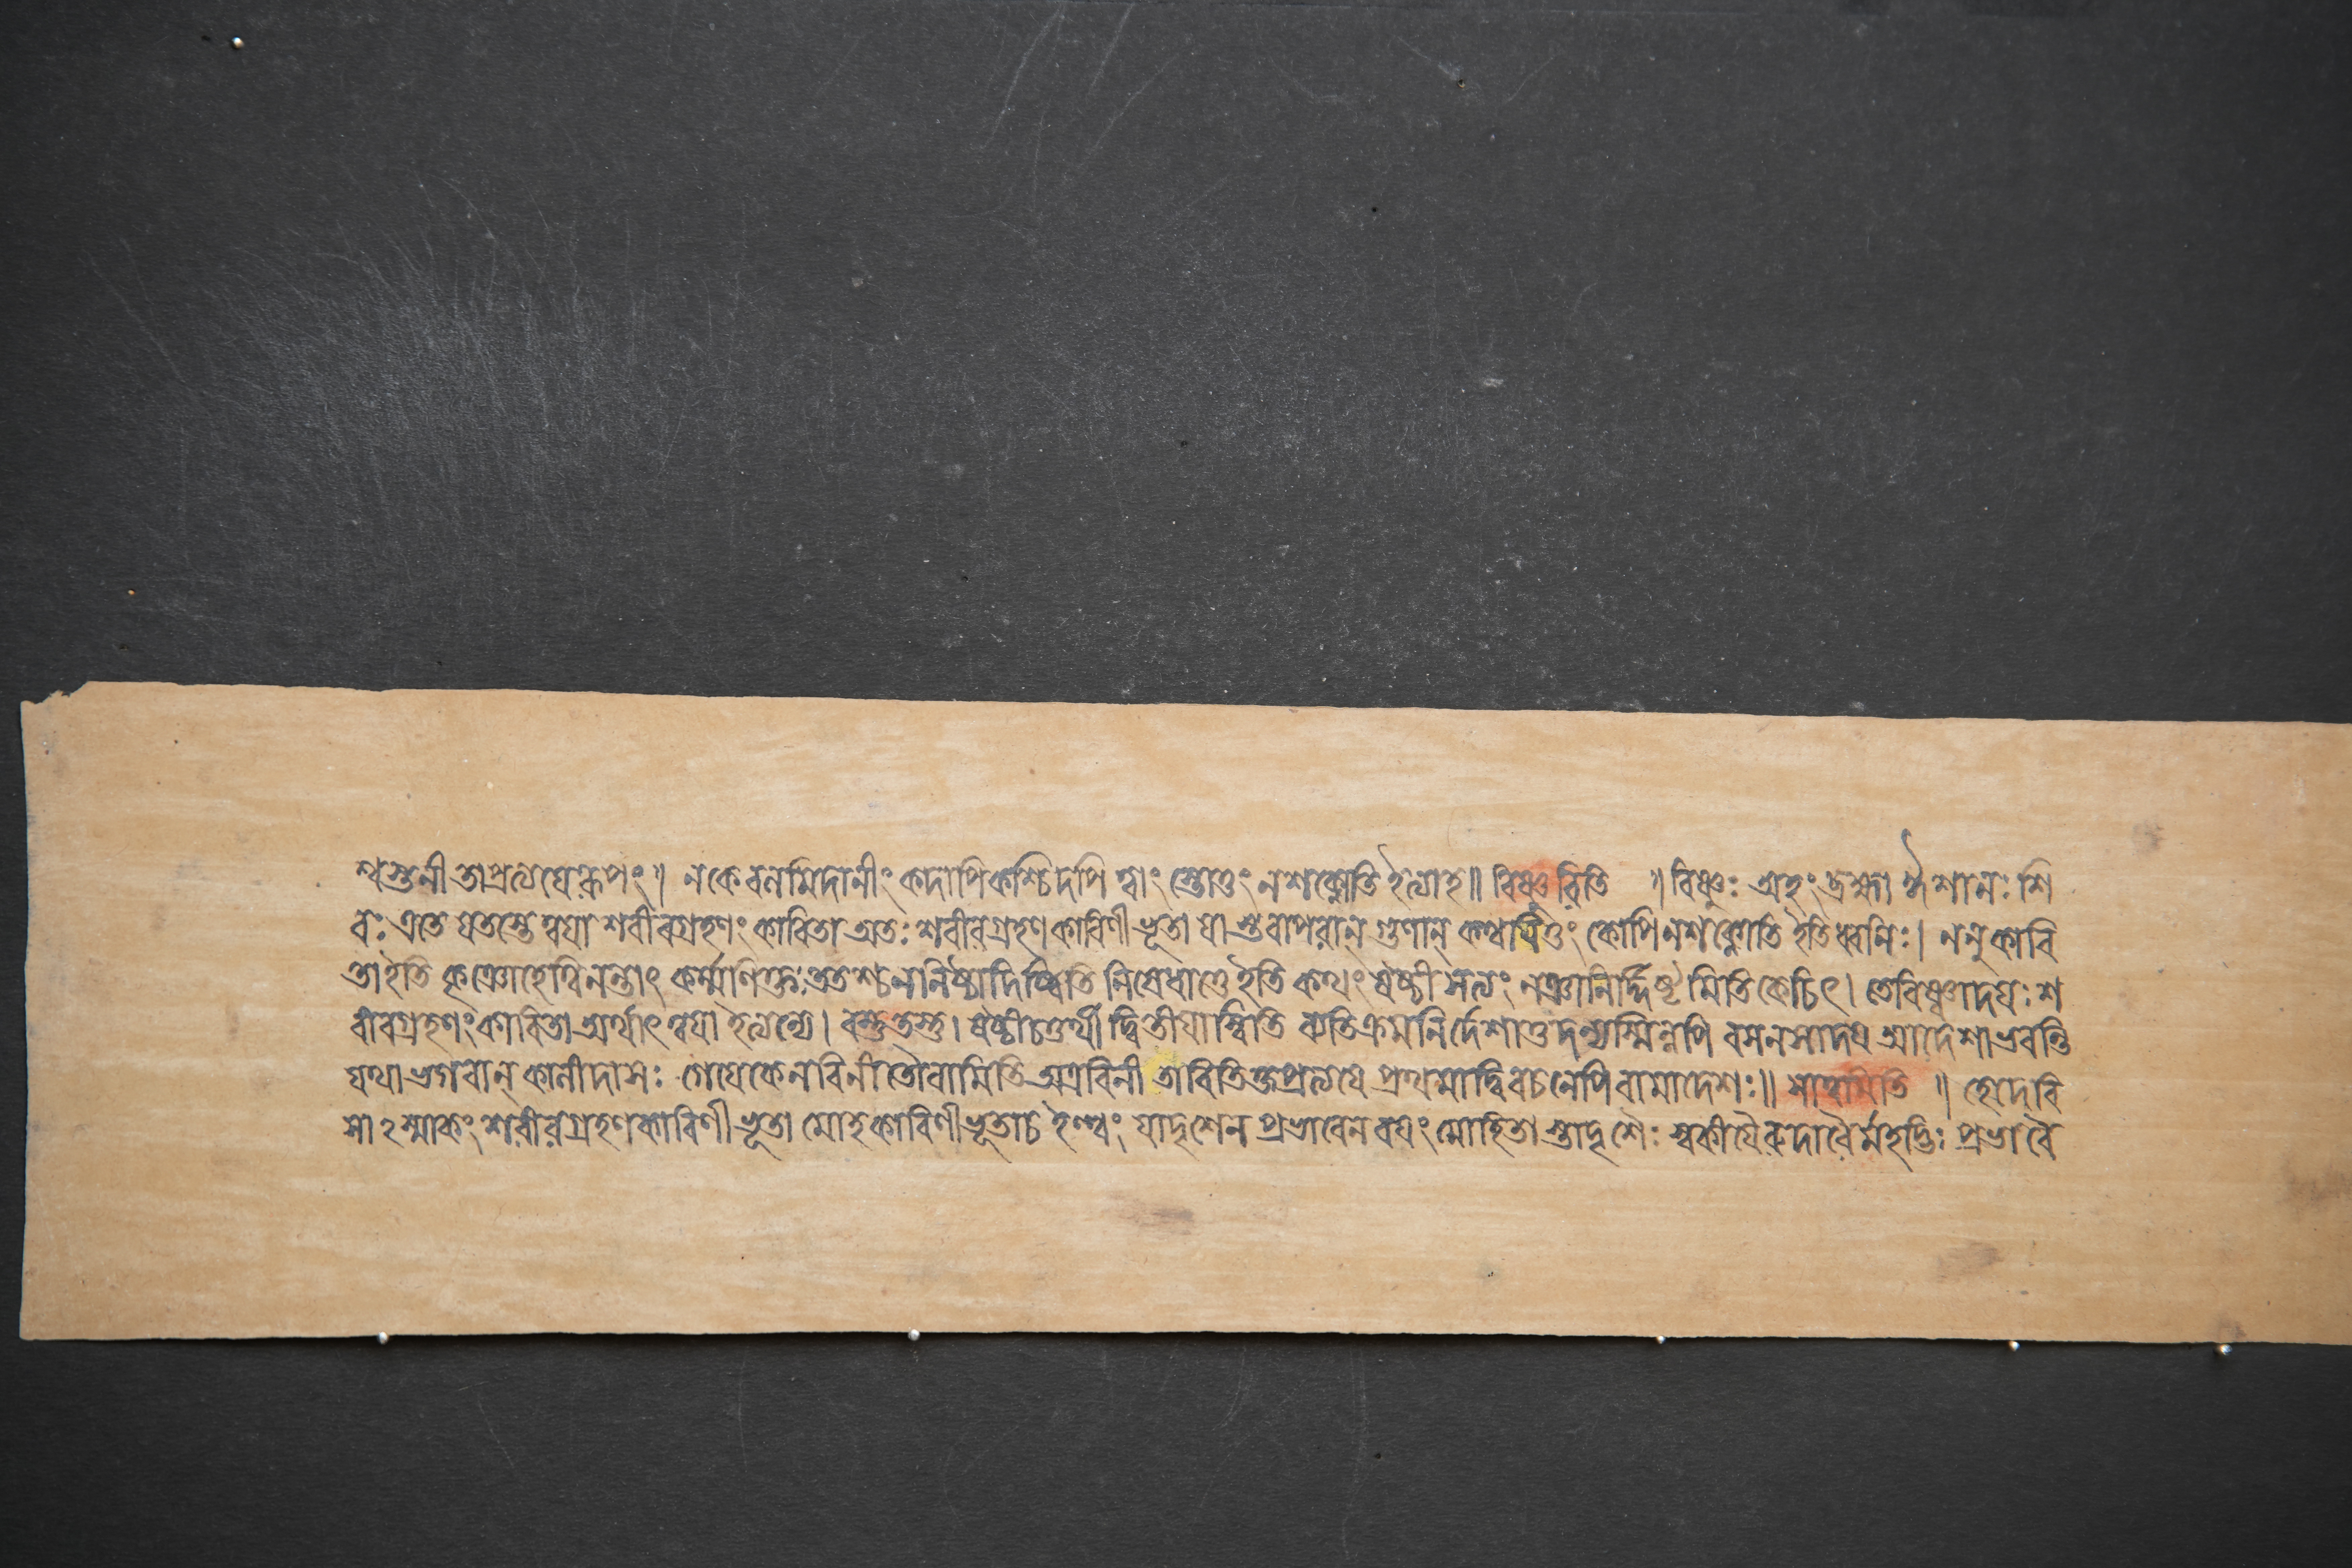 শ্বস্তুনীতাপ্রত্যযেরূপং॥ ন কেবলমিদানীং কদাপি কশ্চিদপি ত্বাং স্তোতুং ন শক্নোতি ইত্যাহ॥ বিষ্ণুরিতি ॥ বিষ্ণুঃ অহং ব্রহ্মা ঈশানঃ শি
বঃ এতে যতস্তে ত্বযা শরীরগ্রহণং কারিতা অতঃ শরীরগ্রহণকারিণীভূতা যাস্তবাপরান্ গুণান্ কথযিতুং কোপি ন শক্নোতি ইতি ধ্বনিঃ। ননু কারি
তা ইতি কৃঞোহেত্বিনন্তাৎ কর্ম্মণি ক্তঃ ততশ্চ ন নিষ্ঠাদিষ্বিতি নিষেধাত্তে ইতি কথং ষষ্ঠী সত্যং নঞানির্দ্দিষ্টমিতি কেচিৎ। তে বিষ্ণ্বাদযঃ শ
রীরগ্রহণং কারিতা অর্থাৎ ত্বযা ইত্যন্যে। বস্তুতস্তু। ষষ্ঠীচতুর্থী দ্বিতীযাস্বিতি ব্যতিক্রমনির্দেশাত্তদন্যস্মিন্নপি বসনসাদয আদেশা ভবন্তি
যথা ভগবান্ কালীদাসঃ গেযে কেন বিনীতৌ বামিতি অত্র বিনীতাবিতি ক্তপ্রত্যযে প্রথমাদ্বিবচনেপি বামাদেশঃ॥ সাত্বমিতি ॥ হে দেবি
সা ঽস্মাকং শরীরগ্রহণকারিণীভূতা মোহকারিণীভূতা চ ইত্থং যাদৃশেন প্রভাবেন বযং মোহিতাস্তাদৃশৈঃ স্বকীযৈরুদারৈর্মহদ্ভিঃ প্রভাবৈ